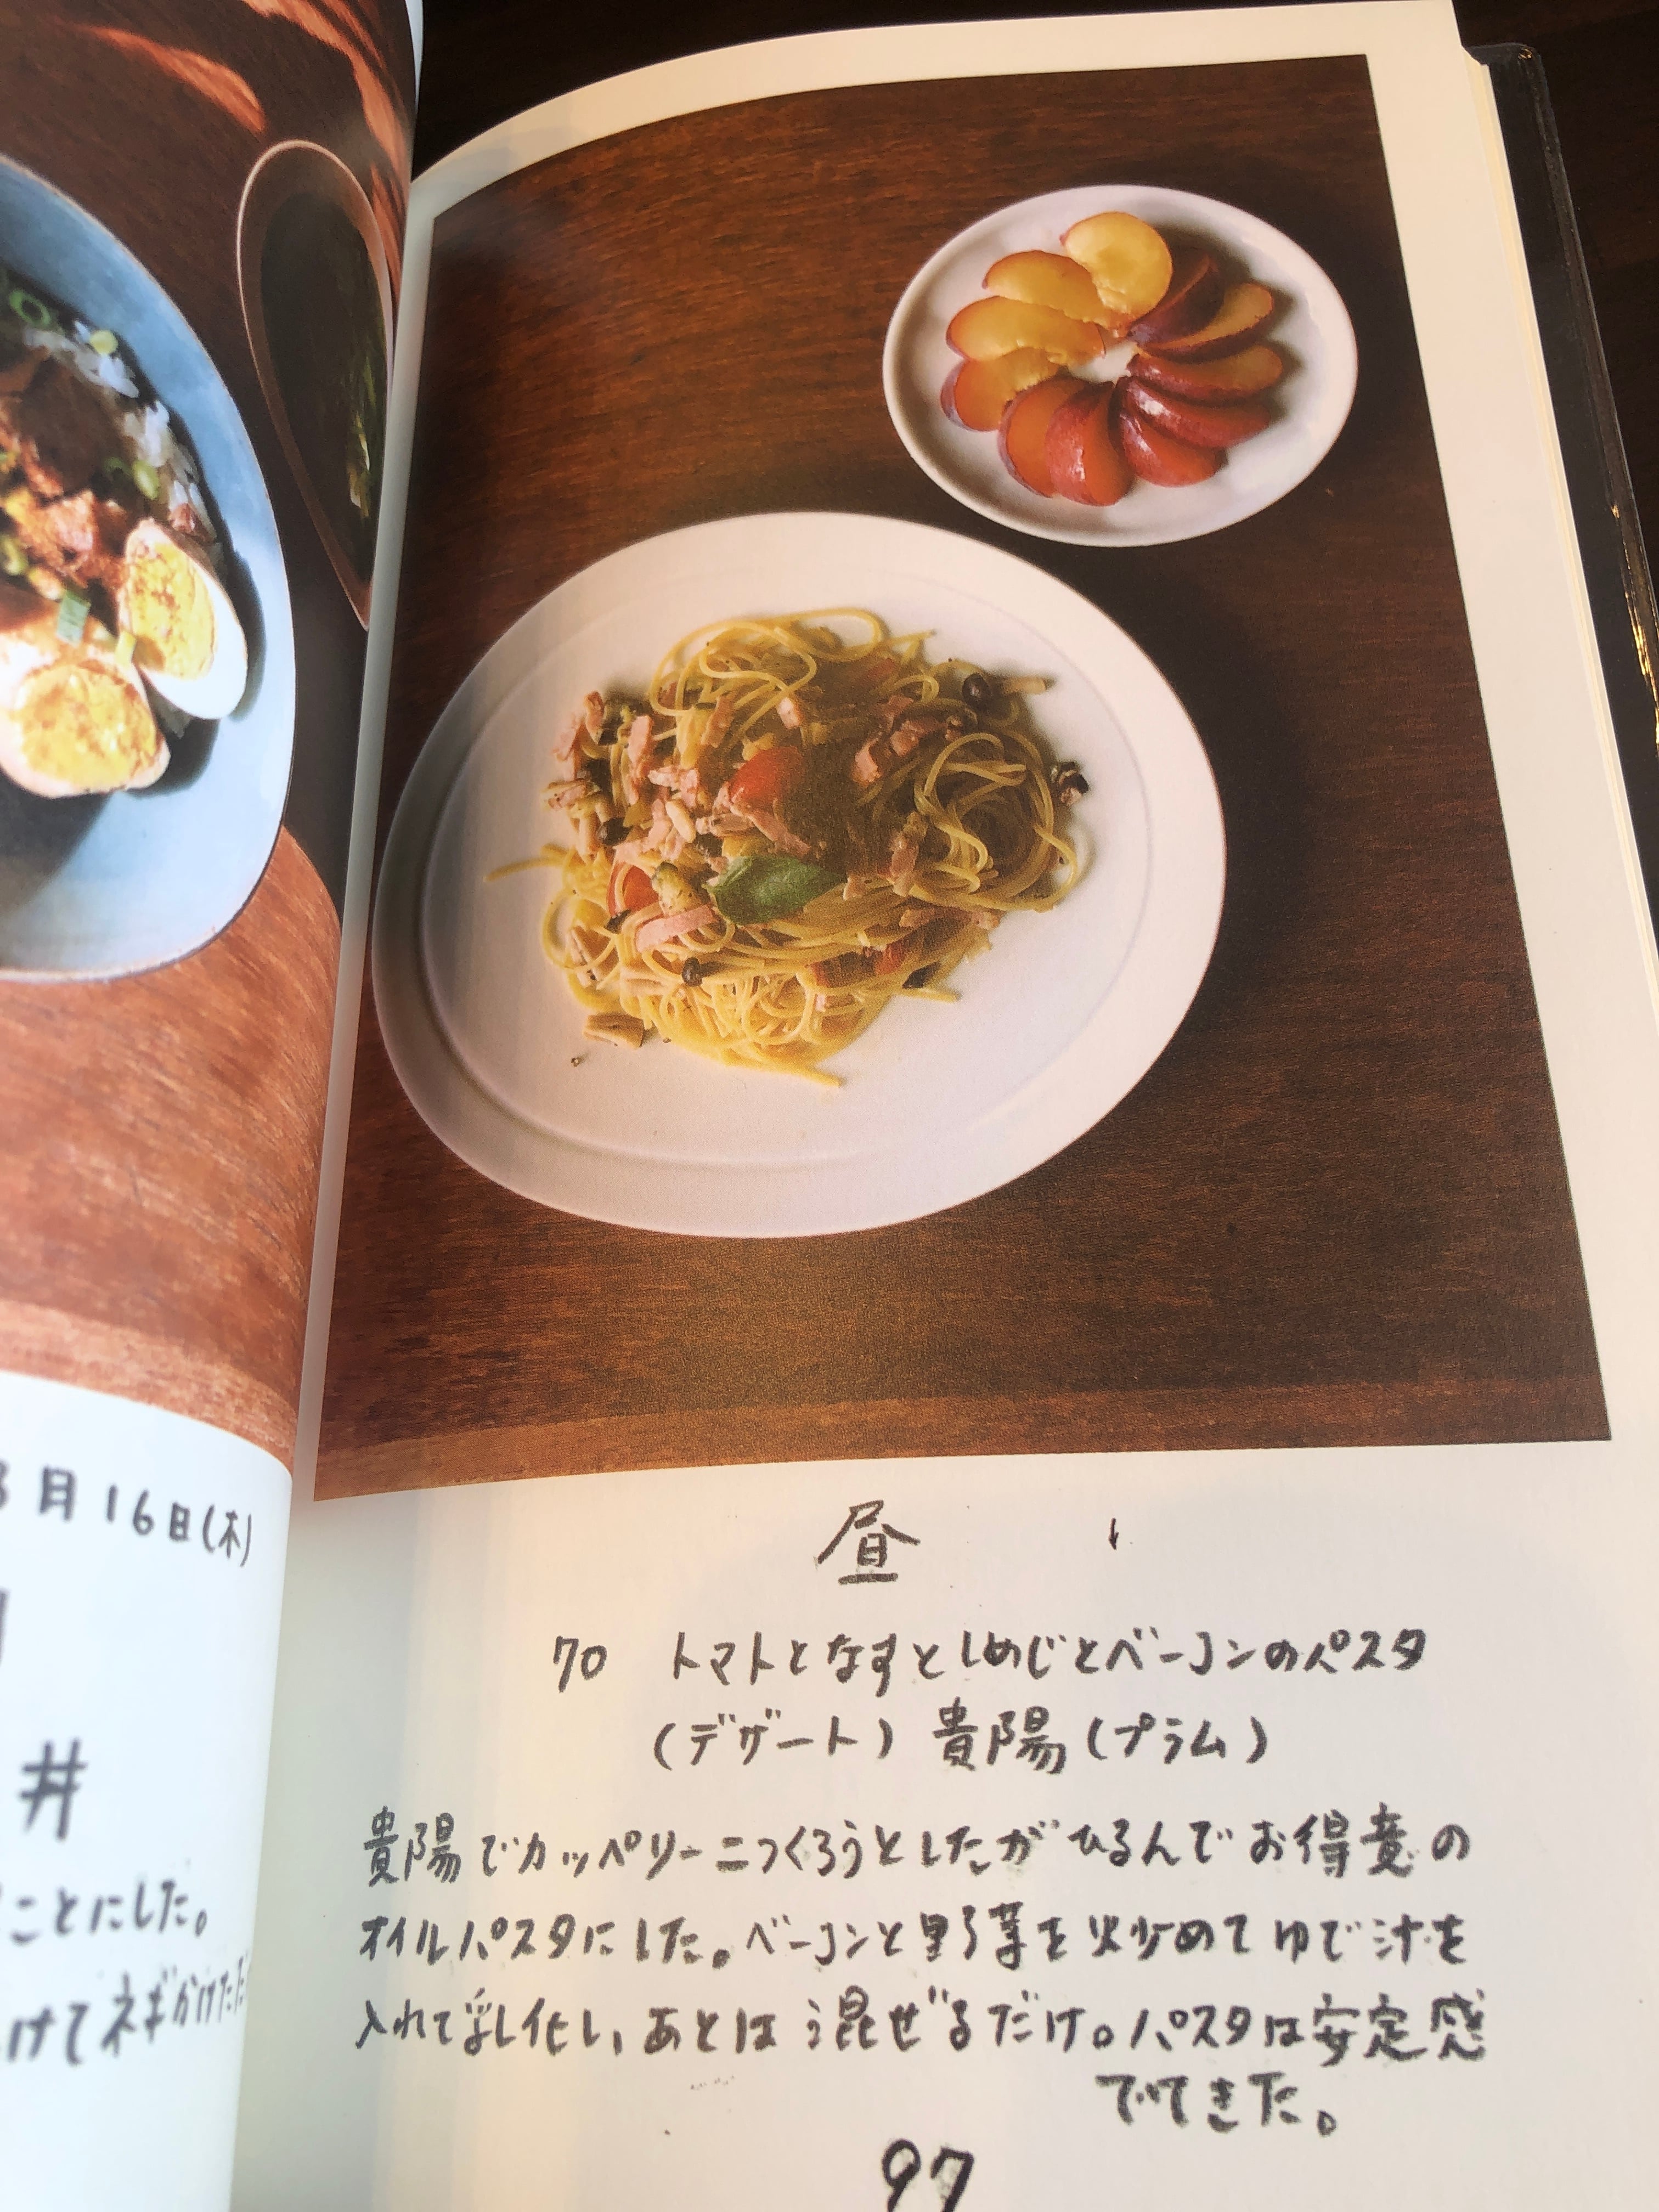 月16日(木)
丼
ことにした。
けてネギかけただ
昼
70 トマトとなすとしめじとベーコンのパスタ
(デザート) 貴陽(プラム)
貴陽でカッペリーニつくろうとしたがひるんでお得意の
オイルパスタにした。ベーコンと野菜を炒めてゆで汁を
入れて乳化し、あとは混ぜるだけ。パスタは安定感
でてきた。
97